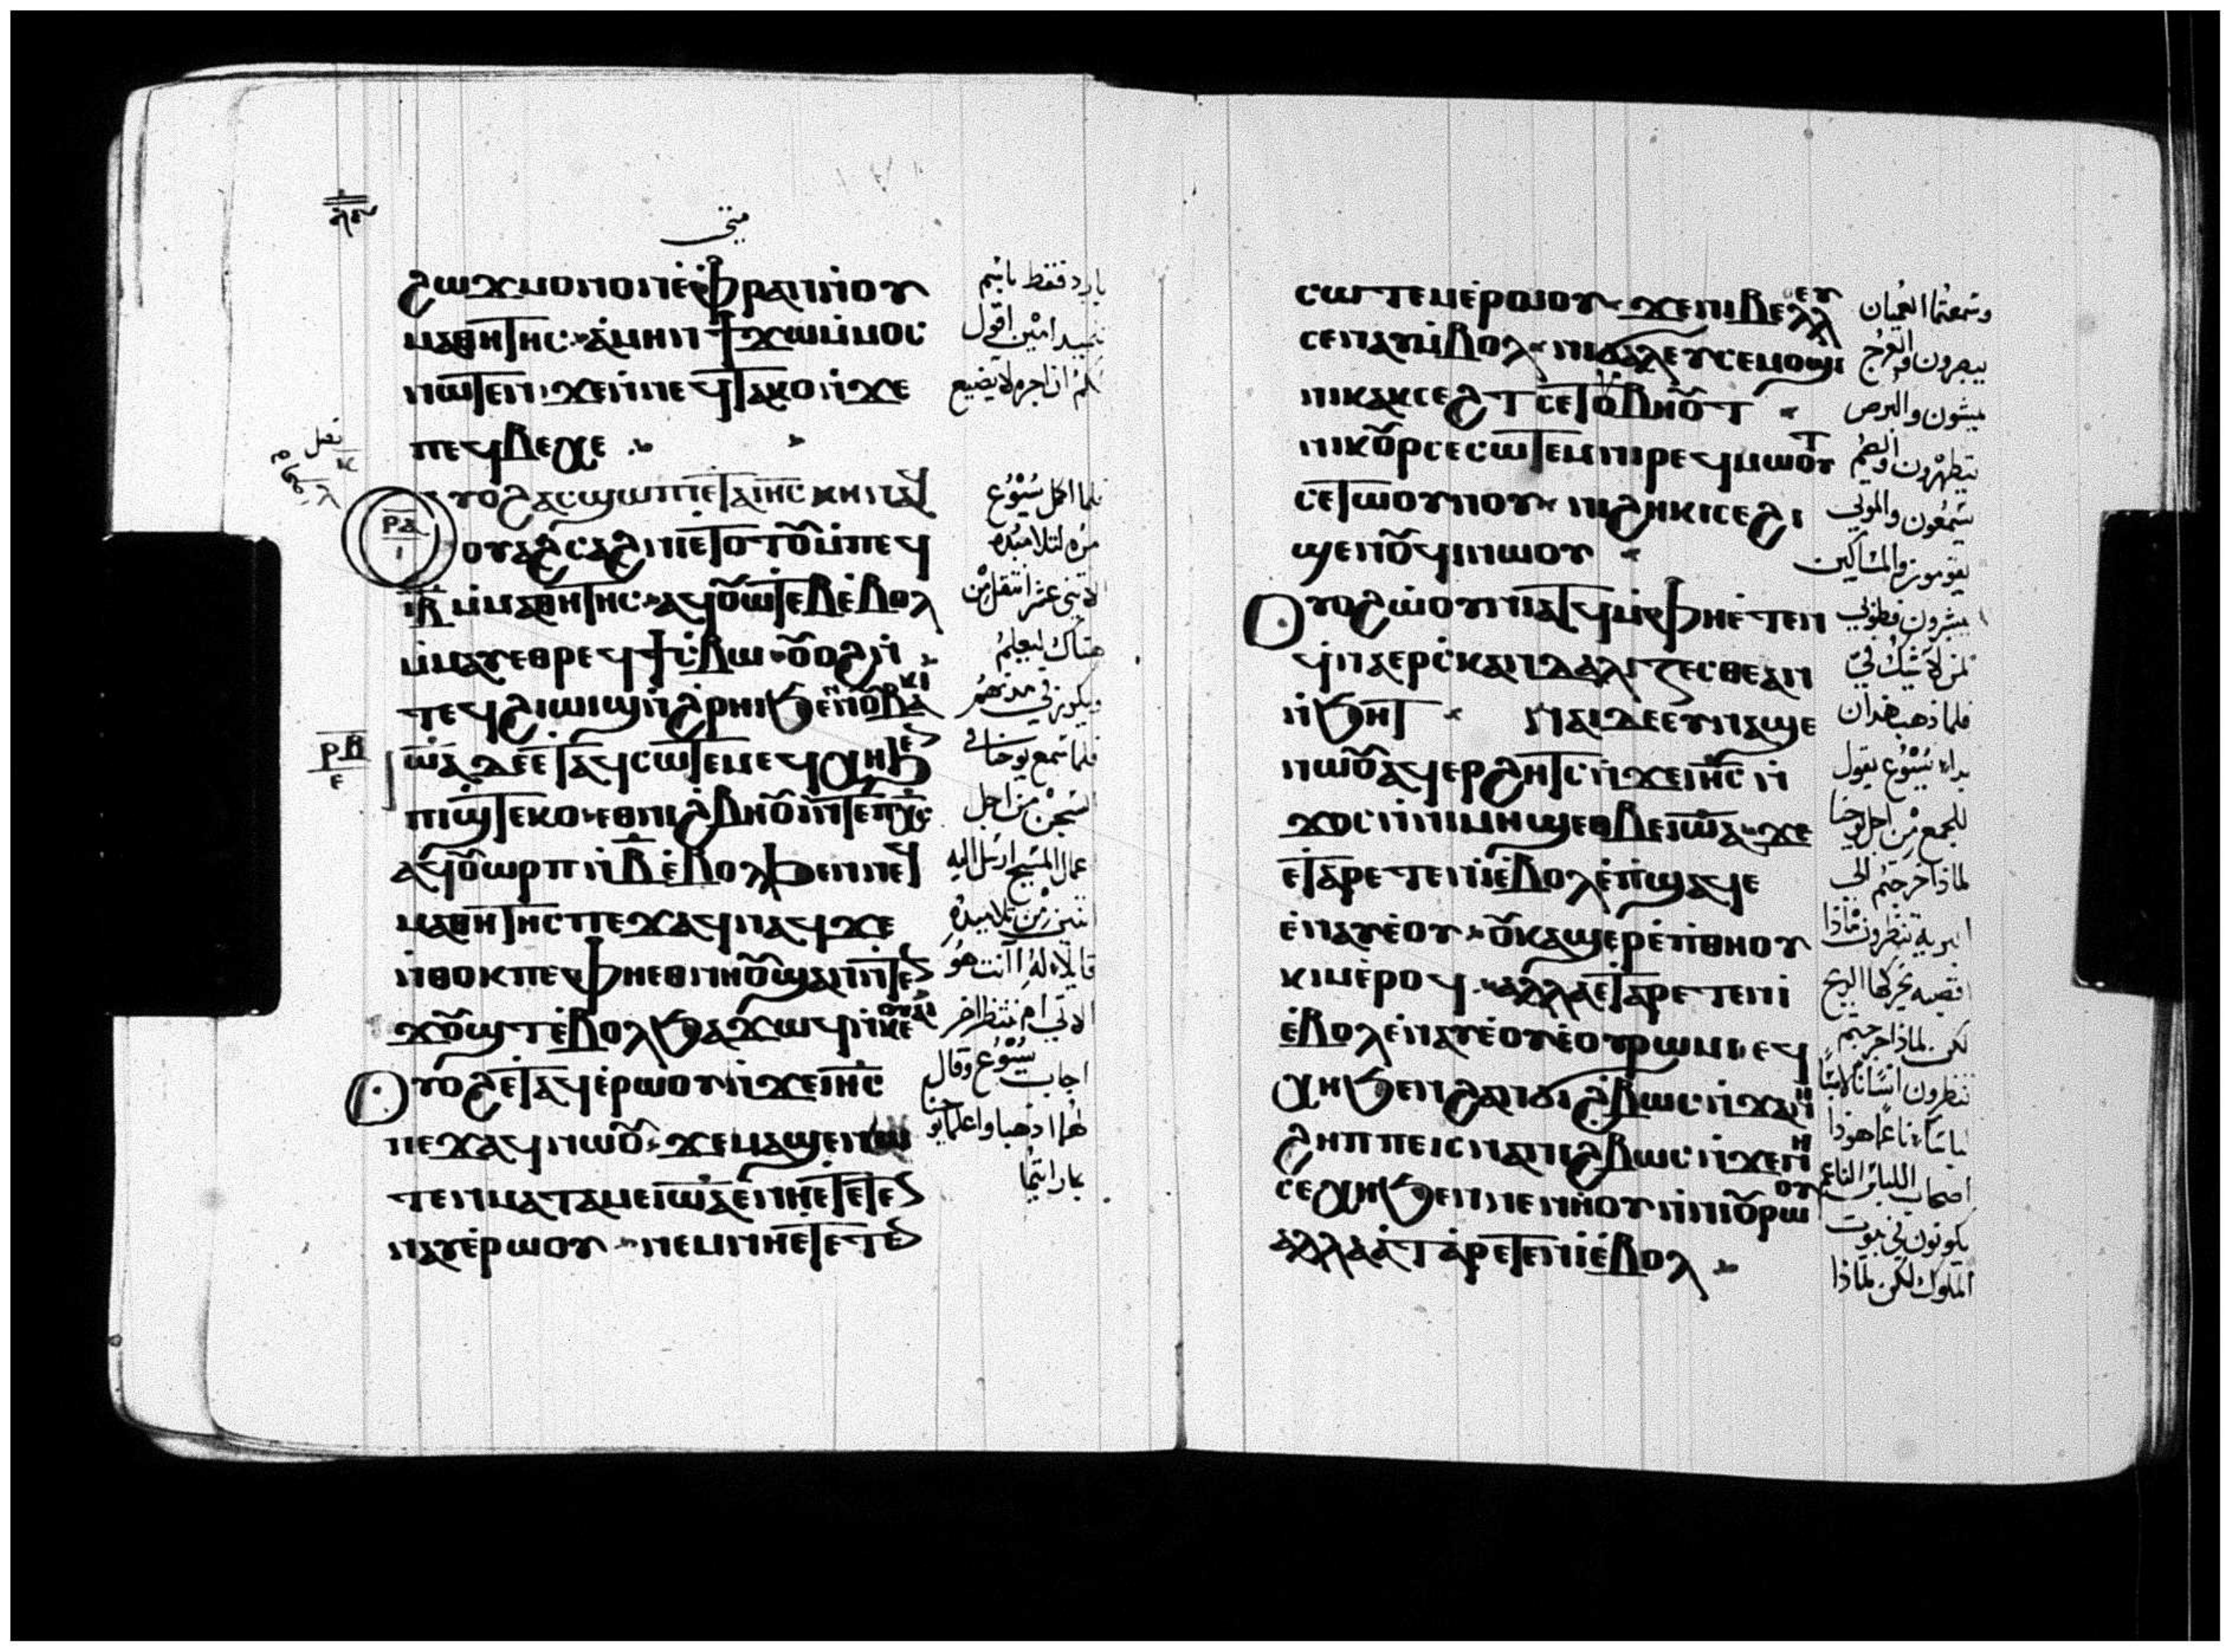 متى
ϩⲱϫ ⲙⲟⲛⲟⲛ ⲉ̇ⲫⲣⲁⲛ ⲛ̇ⲟⲩ
ⲙⲁⲑⲏⲧⲏⲥ ⲁ̇ⲙⲏⲛ ϯϫⲱ ⲙ̇ⲙⲟⲥ
ⲛⲱⲧⲉⲛ ϫⲉ ⲛ̇ⲛⲉϥⲧⲁⲕⲟ ⲛ̇ϫⲉ
ⲡⲉϥⲃⲉⲭⲉ
ⲟⲩⲟϩ ⲁⲥϣⲱⲡⲓ ⲉⲧⲁ ⲓⲏⲥ ⲕⲏⲛ ⲉϥ
ⲟⲩⲁϩⲥⲁϩⲛⲓ ⲉⲧⲟⲧⲟⲩ ⲙ̇ⲡⲉϥ
ⲓⲃ ⲙ̇ⲙⲁⲑⲏⲧⲏⲥ ⲁϥⲟⲩⲱⲧⲉⲃ ⲉ̇ⲃⲟⲗ
ⲙ̇ⲙⲁⲩ ⲉⲑⲣⲉϥϯⲥ̇ⲃⲱ ⲟⲩⲟϩ ⲛ̇
ⲧⲉϥϩⲓⲱⲓϣ ⲛ̇ϩ̇ⲣⲏⲓ ϧⲉⲛ ⲛⲟⲩⲃⲁⲕⲓ
ⲓⲱⲁ ⲇⲉ ⲉⲧⲁϥⲥⲱⲧⲉⲙ ⲉϥⲭⲏ ϧⲉⲛ
ⲡⲓϣⲧⲉⲕⲟ ⲉⲑⲃⲉ ⲛⲓϩⲃⲏⲟⲩⲓ ⲛ̇ⲧⲉ ⲡⲭⲥ
ⲁϥⲟⲩⲱⲣⲡ ⲛ̇ⲃ ⲉ̇ⲃⲟⲗ ϧⲉⲛ ⲛⲉϥ
ⲙⲁⲑⲏⲧⲏⲥ ⲡⲉϫⲁϥ ⲛⲁϥ ϫⲉ
ⲛ̇ⲑⲟⲕ ⲡⲉ ⲫⲏ ⲉⲑⲛⲏⲟⲩ ϣⲁⲛ ⲛ̇ⲧⲉⲛ
ϫⲟⲩϣⲧ ⲉ̇ⲃⲟⲗ ϧⲁϫⲱϥ ⲛ̇ⲕⲉⲟⲩⲁⲓ
ⲟⲩⲟϩ ⲉⲧⲁϥⲉ̇ⲣⲟⲩⲱ ⲛ̇ϫⲉ ⲓⲏⲥ
ⲡⲉϫⲁϥ ⲛⲱⲟⲩ ϫⲉ ⲙⲁϣⲉⲛⲱ
ⲧⲉⲛ ⲙⲁⲧⲁⲙⲉ ⲓⲱⲁ ⲉ̇ⲛⲏ ⲉⲧⲉⲧⲉⲛ
ⲛⲁⲩ ⲉ̇ⲣⲱⲟⲩ ⲛⲉⲙ ⲛⲏ ⲉⲧⲉⲧⲉⲛ
بارد فقط باسم
تلميذ امين اقول
لكم ان اجره لا يضيع
فلما اكمل يسوع
امره لتلاميذه
الاثنى عشر انتقل من
هناك ليعلم
ويكرز في مدنهم
فلما سمع يوحنا في
السجن من اجل
اعمال المسيح ارسل اليه
اثنين من تلاميذه
قايلا له اانت هو
الاتي ام ننتظر اخر
اجاب يسوع وقال
لهما اذهبا واعلما يوحنا
بما رايتما
ⲥⲱⲧⲉⲙ ⲉ̇ⲣⲱⲟⲩ ϫⲉ ⲛⲓⲃⲉⲗⲗⲉⲩ
ⲥⲉⲛⲁⲩ ⲙ̇ⲃⲟⲗ ⲛⲓϭⲁⲗⲉⲩ ⲥⲉⲙⲟϣⲓ
ⲛⲓⲕⲁⲕⲥⲉϩⲧ ⲥⲉⲧⲟⲩⲃⲏⲟⲩⲧ
ⲛⲓⲕⲟⲩⲣ ⲥⲉⲥⲱⲧⲉⲙ ⲛⲓⲣⲉϥⲙⲱⲟⲩⲧ
ⲥⲉⲧⲱⲟⲩⲛⲟⲩ ⲛⲓϩⲏⲕⲓ ⲥⲉϩⲓ
ϣⲉⲛⲛⲟⲩϥⲓ ⲛⲱⲟⲩ
ⲟⲩⲟϩ ⲱⲟⲩⲛⲓⲁⲧϥ ⲙ̇ⲫⲏ ⲉ̇ⲧⲉⲛ
ϥ̇ⲛⲁⲉⲣⲥ̇ⲕⲁⲛⲇⲁⲗⲓⲍⲉⲥⲑⲉ ⲁⲛ
ⲛ̇ϧⲏⲧ ⲛⲁⲓ ⲇⲉ ⲉⲩⲛⲁϣⲉ
ⲛⲱⲟⲩ ⲁϥⲉⲣϩⲏⲧⲥ ⲛ̇ϫⲉ ⲓⲏⲥ ⲛ̇
ϫⲟⲥ ⲛ̇ⲛⲓⲙⲏϣ ⲉⲑⲃⲉ ⲓⲱⲁ ϫⲉ
ⲉⲧⲁⲣⲉⲧⲉⲛⲓ̇ ⲉ̇ⲃⲟⲗ ⲉ̇ⲡϣⲁϥⲉ
ⲉ̇ⲛⲁⲩ ⲉ̇ⲟⲩ ⲟⲩⲕⲁϣ ⲉⲣⲉ ⲡⲓⲑⲏⲟⲩ
ⲕⲓⲙ ⲉ̇ⲣⲟϥ ⲁⲗⲗⲁ ⲉⲧⲁⲣⲉⲧⲉⲛⲓ
ⲉ̇ⲃⲟⲗ ⲉ̇ⲛⲁⲩ ⲉ̇ⲟⲩ ⲉ̇ⲟⲩⲣⲱⲙⲓ ⲉϥ
ⲭⲏ ϧⲉⲛ ϩⲁⲛϩ̇ⲃⲱⲥ ⲛ̇ϫⲏⲛ
ϩⲏⲡⲡⲉ ⲓⲥ ⲛⲁ ⲛⲓϩ̇ⲃⲱⲥ ⲛ̇ϫⲏⲛ
ⲥⲉⲭⲏ ϧⲉⲛ ⲛⲉⲛⲏⲟⲩ ⲛ̇ⲛⲓⲟⲩⲣⲱⲟⲩ
ⲁⲗⲗⲁ ⲉⲧⲁⲣⲉⲧⲉⲛⲓ̇ ⲉ̇ⲃⲟⲗ
وسمعتما العميان
يبصرون والعرج
يمشون والبرص
يتطهرون والصم
يسمعون والموتى
يقومون والمساكين
يبشرون فطوبى
لمن لا يشك في
فلما ذهب هذان
بدا يسوع يقول
للجمع من اجل يوحنا
لماذا خرجتم الى
البرية تنظرون ماذا
اقصبه تحركها الريح
لكن لماذا خرجتم
تنظرون انسانا لابسا
لباسا ناعما هوذا
اصحاب اللباس الناعم
يكونون في بيوت
الملوك لكن لماذا